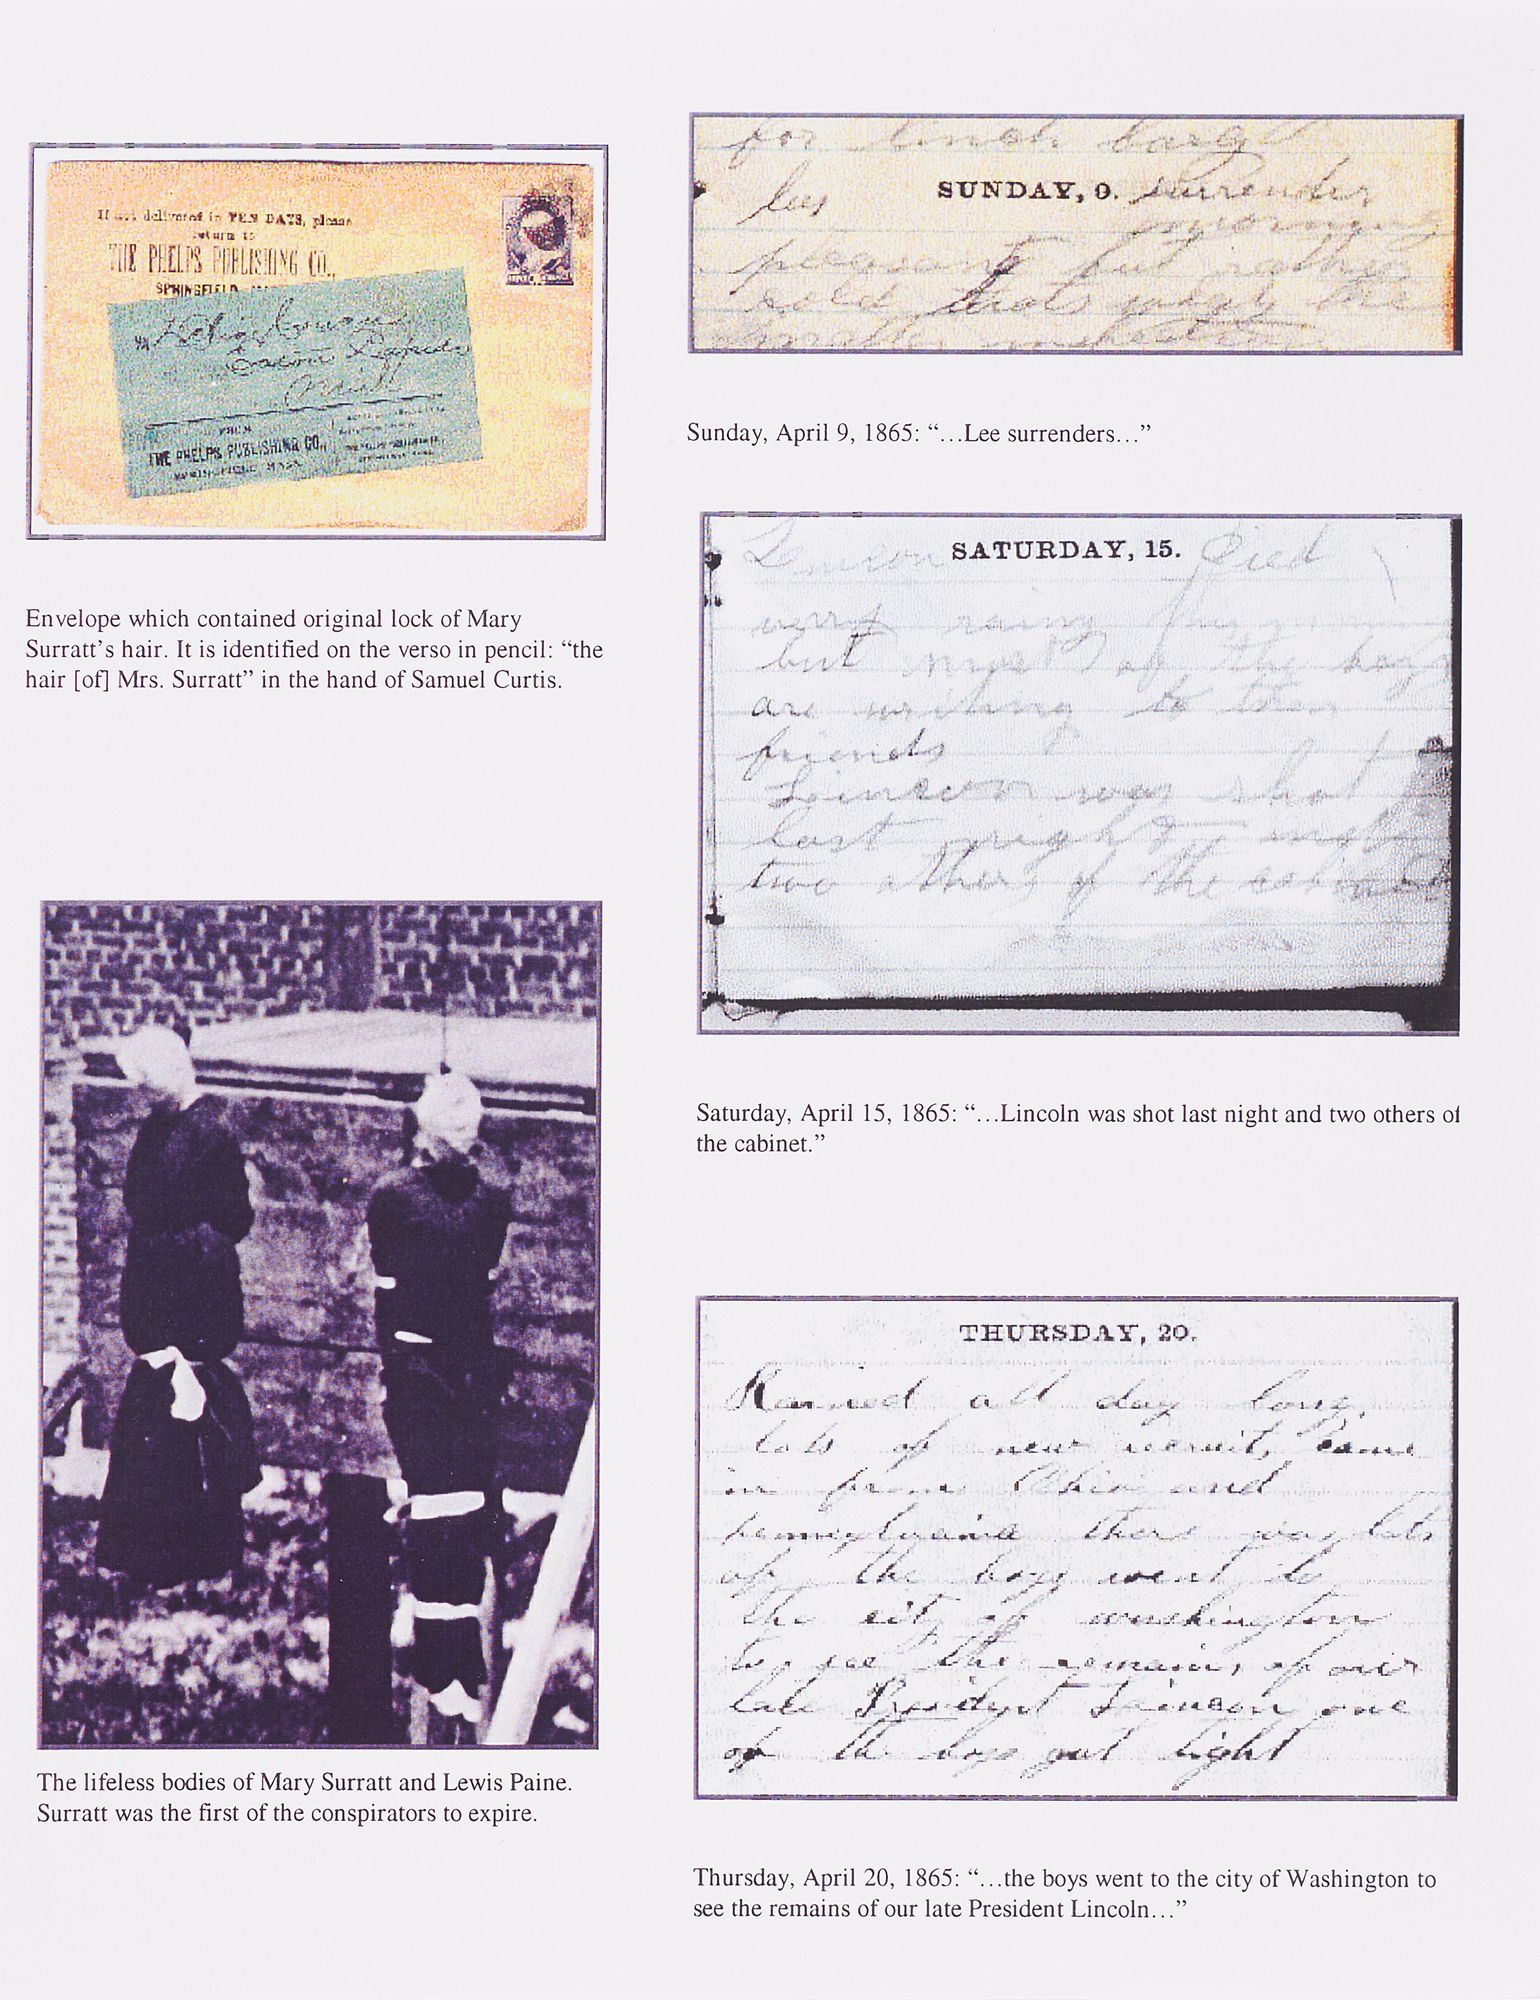 If not delivered in TEN DAYS, please
return to
THE PHELPS PUBLISHING CO.,
SPRINGFIELD, MASS.
FROM
THE PHELPS PUBLISHING CO.,
SPRINGFIELD, MASS.
Envelope which contained original lock of Mary
Surratt's hair. It is identified on the verso in pencil: “the
hair [of] Mrs. Surratt” in the hand of Samuel Curtis.
The lifeless bodies of Mary Surratt and Lewis Paine.
Surratt was the first of the conspirators to expire.
for
lees SUNDAY, 9. surrender
morning
pleasant but rather
cold that was the
Sunday, April 9, 1865: “…Lee surrenders…”
SATURDAY, 15. Died
very rainy this
but most of the boys
are writing to their
friends
Leincon was shot
last night and
two others of the cabinet
Saturday, April 15, 1865: “…Lincoln was shot last night and two others of
the cabinet.”
THURSDAY, 20.
Rained all day long.
lots of new recruits came
in from Ohio and
pennsylvania there was lots
of the boys went to
the city of washington
to see the remains of our
late President Leincon one
of the boys got tight
Thursday, April 20, 1865: “…the boys went to the city of Washington to
see the remains of our late President Lincoln…”